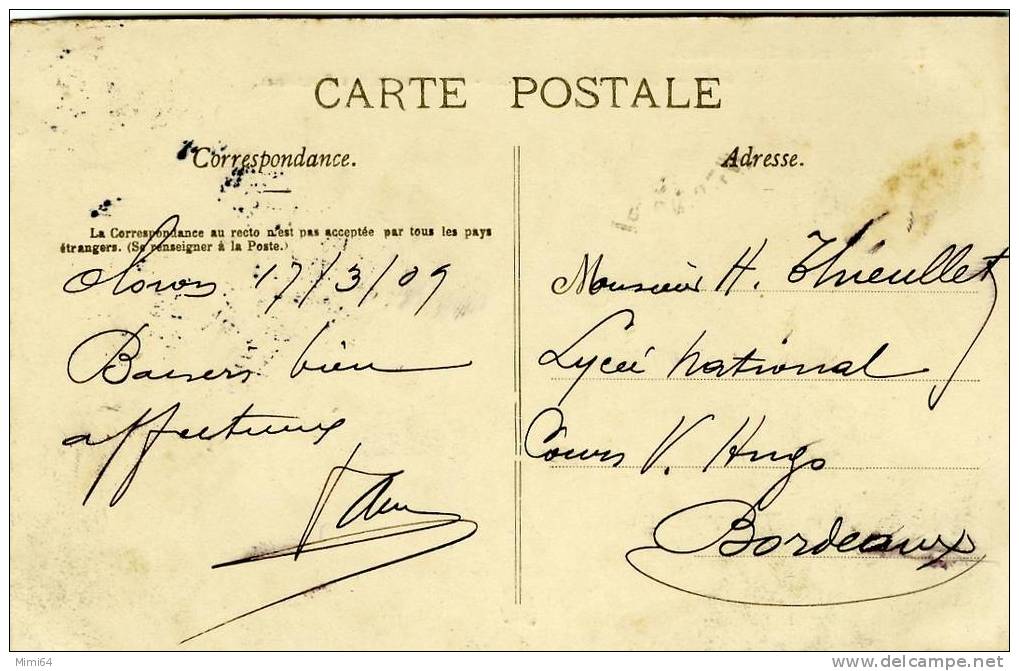 CARTE POSTALE
Correspondance.
La Correspondance au recto n'est pas acceptée par tous les pays
étrangers. (Se renseigner à la Poste.)
Oloron 17/3/09
Baisers bien
affectueux
Adresse.
Monsieur H. Thieullet
Lycée National
Cours V. Hugo
Bordeaux
Mimi64
www.delcampe.net